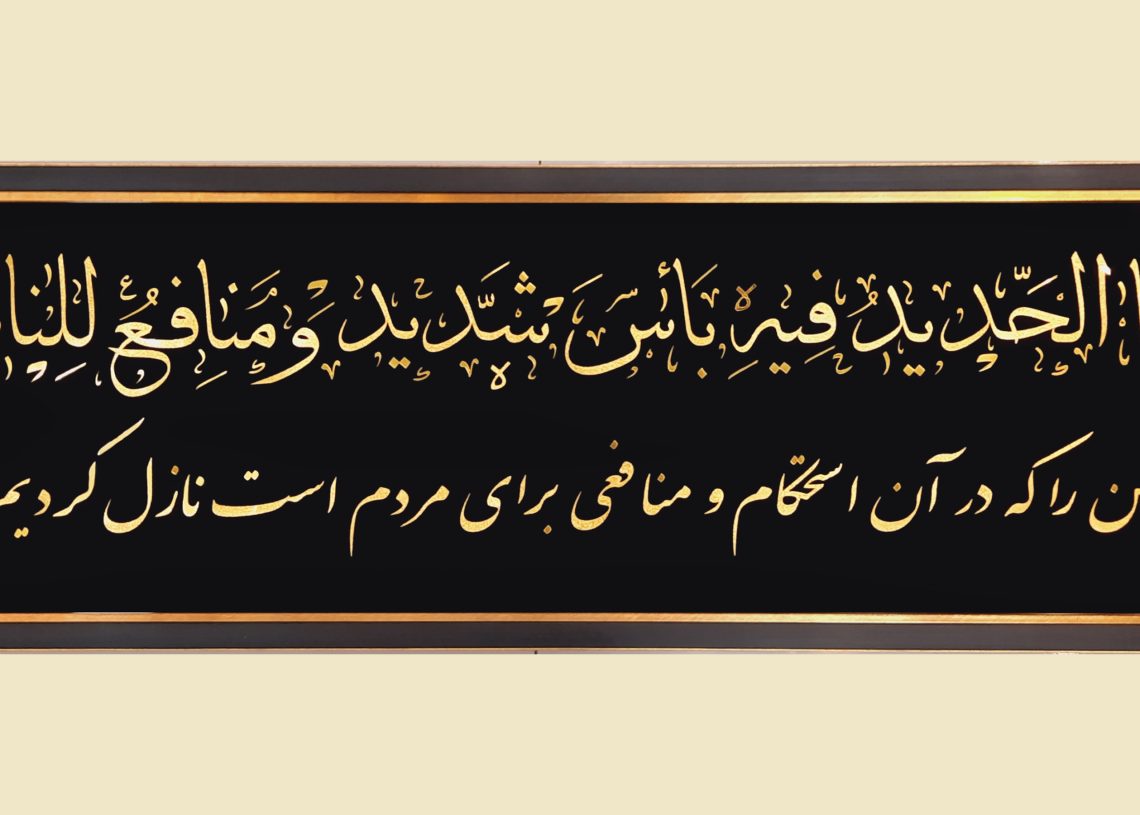 الحَّدیدُ فِیهِ بَأسَ شَدیَّد وَ مَنافِعُ لِلنا
ن را که در آن استحکام و منافعی برای مردم است نازل کردیم